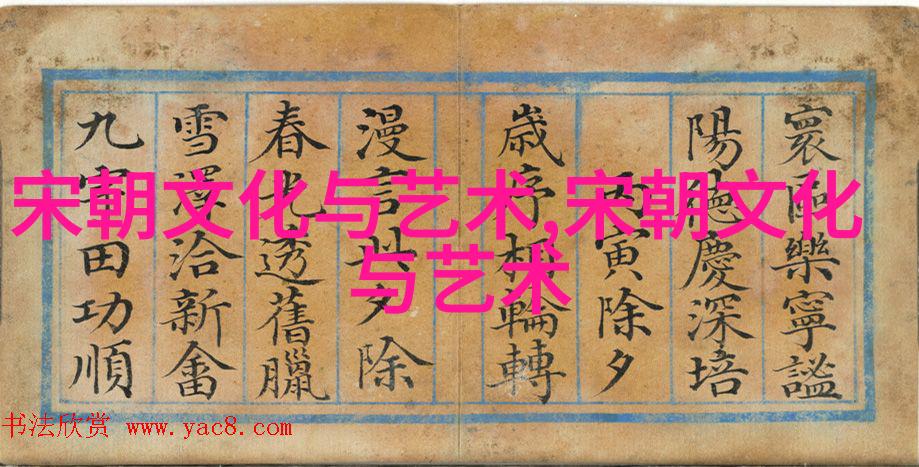 宋朝文化与艺术,宋朝文化
与艺术
寰區樂寧謐
陽慶深培
丙寅除夕
歲序相輪轉
漫言夕除
春透舊臘
雪澤洽新畬
九田功順
书法欣赏 www.yac8.com